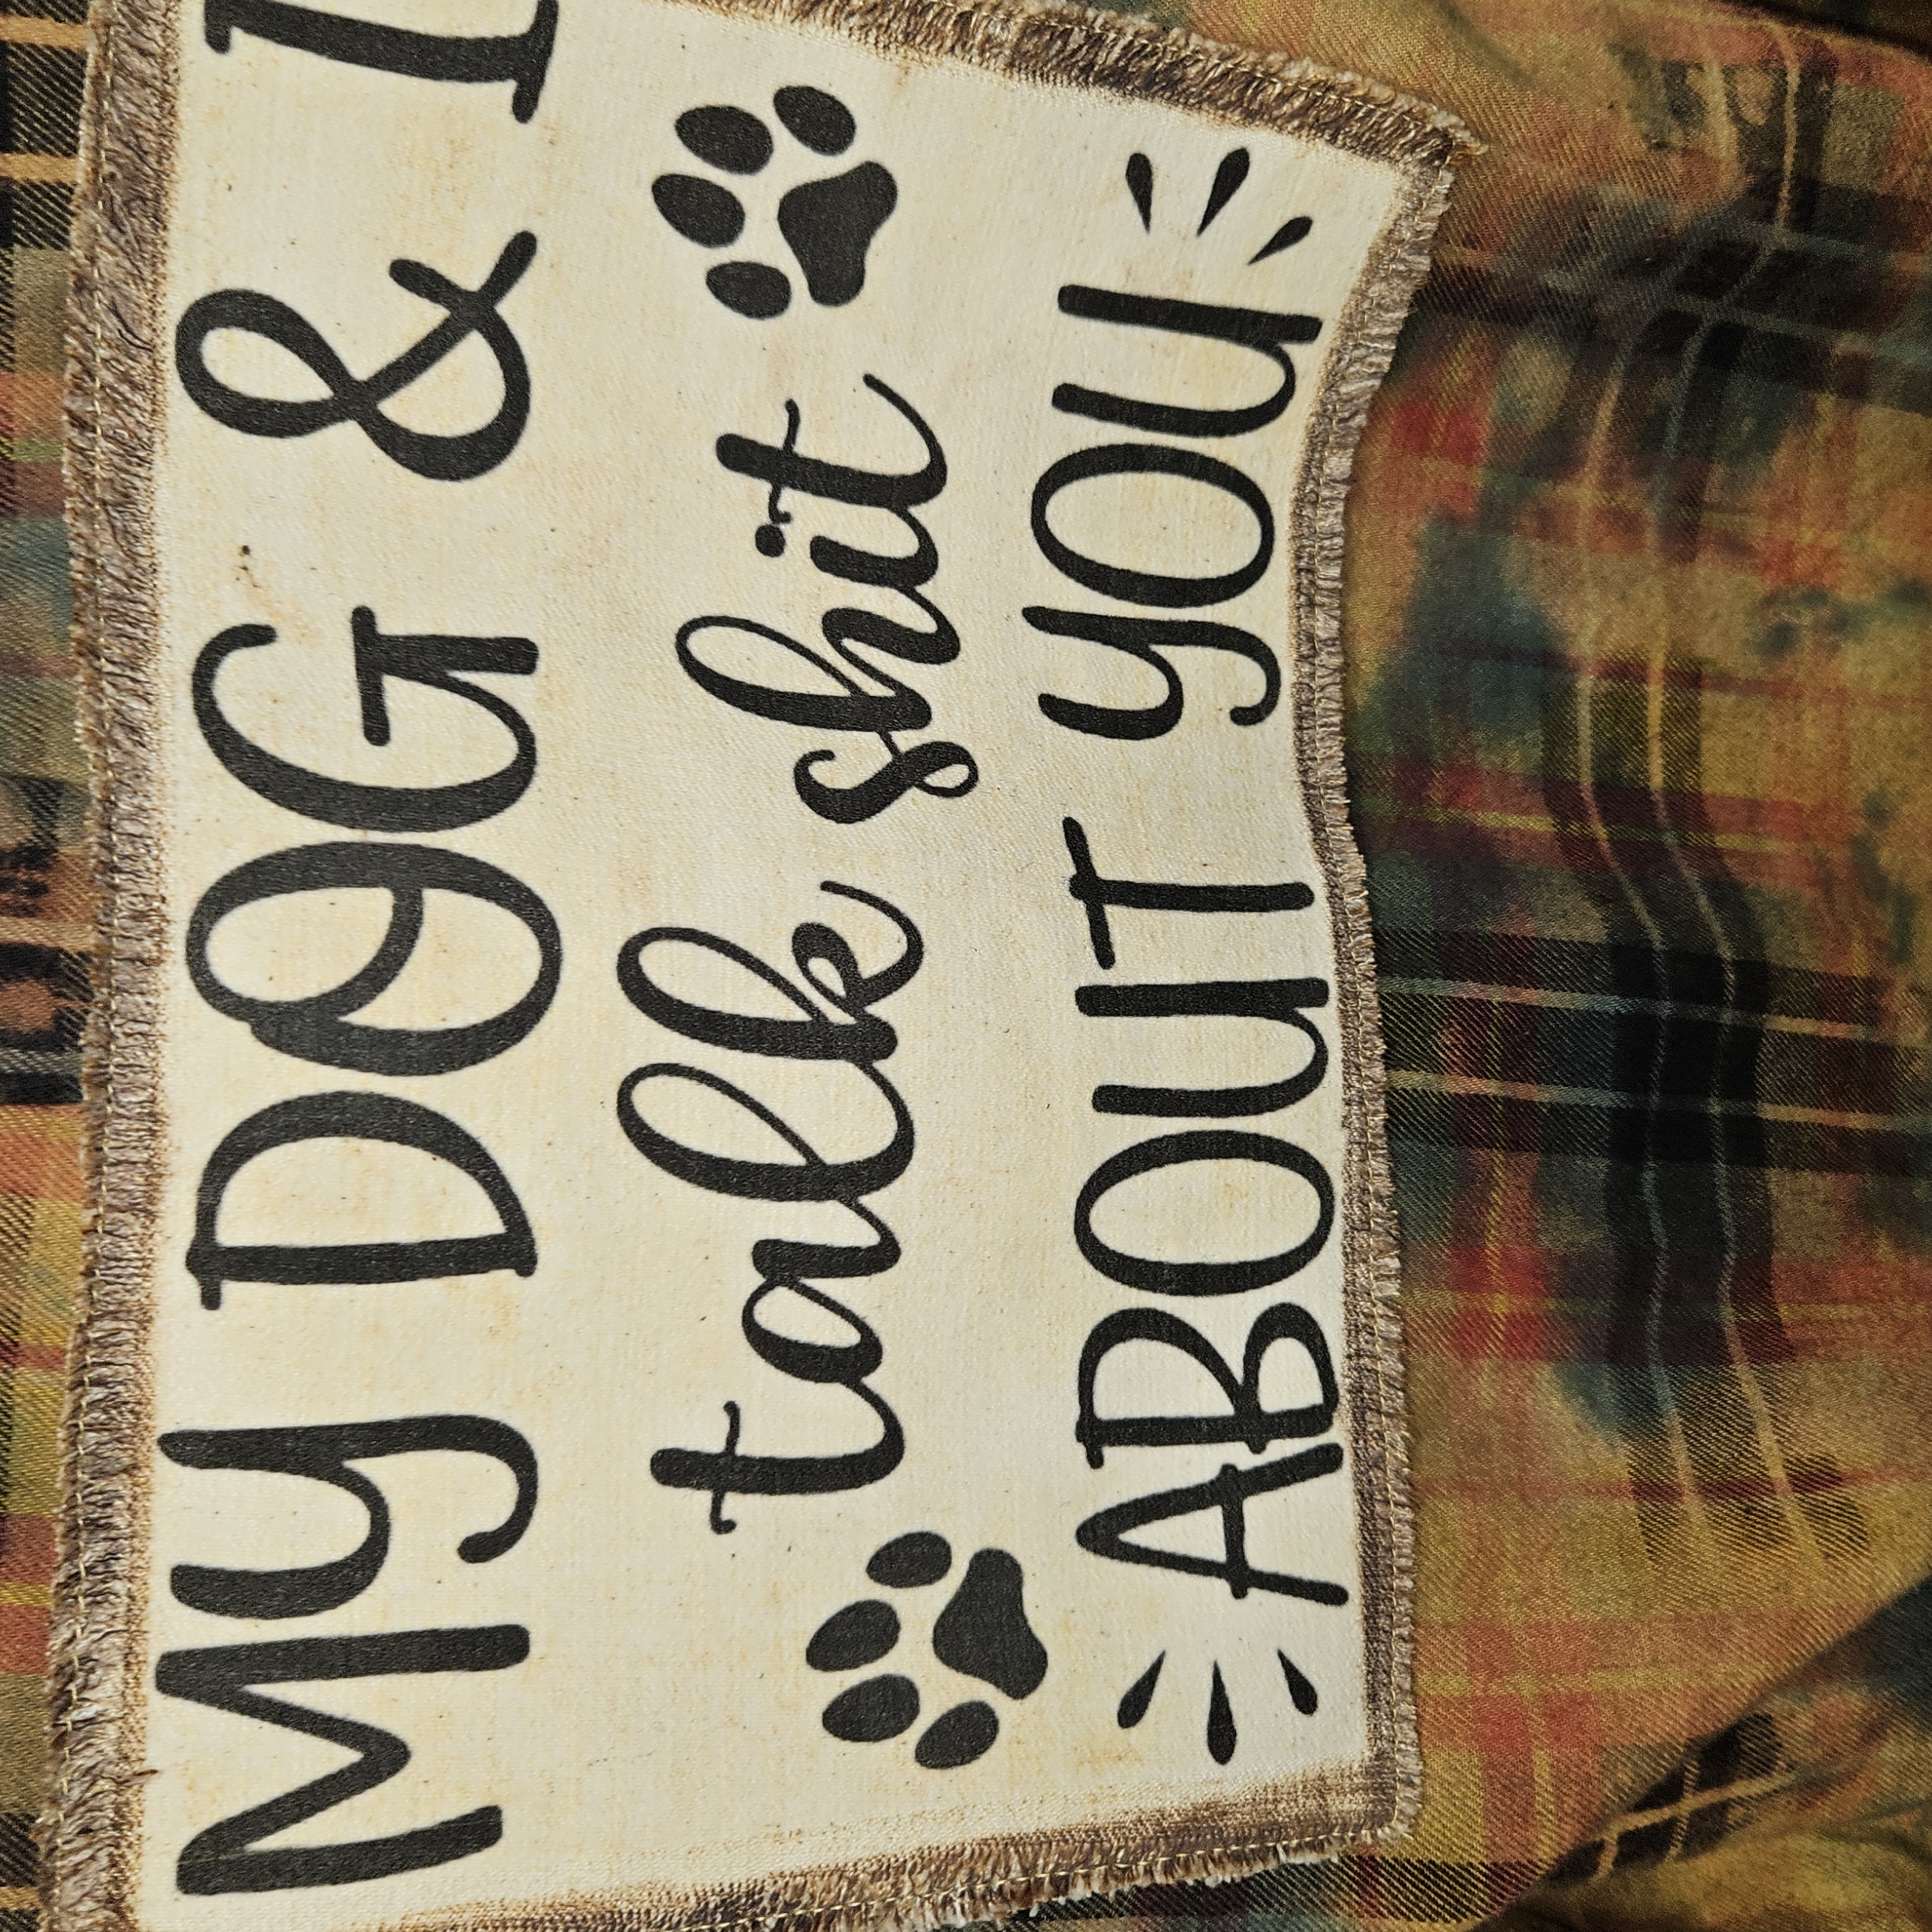 My DOG & I
talk shit
ABOUT YOU